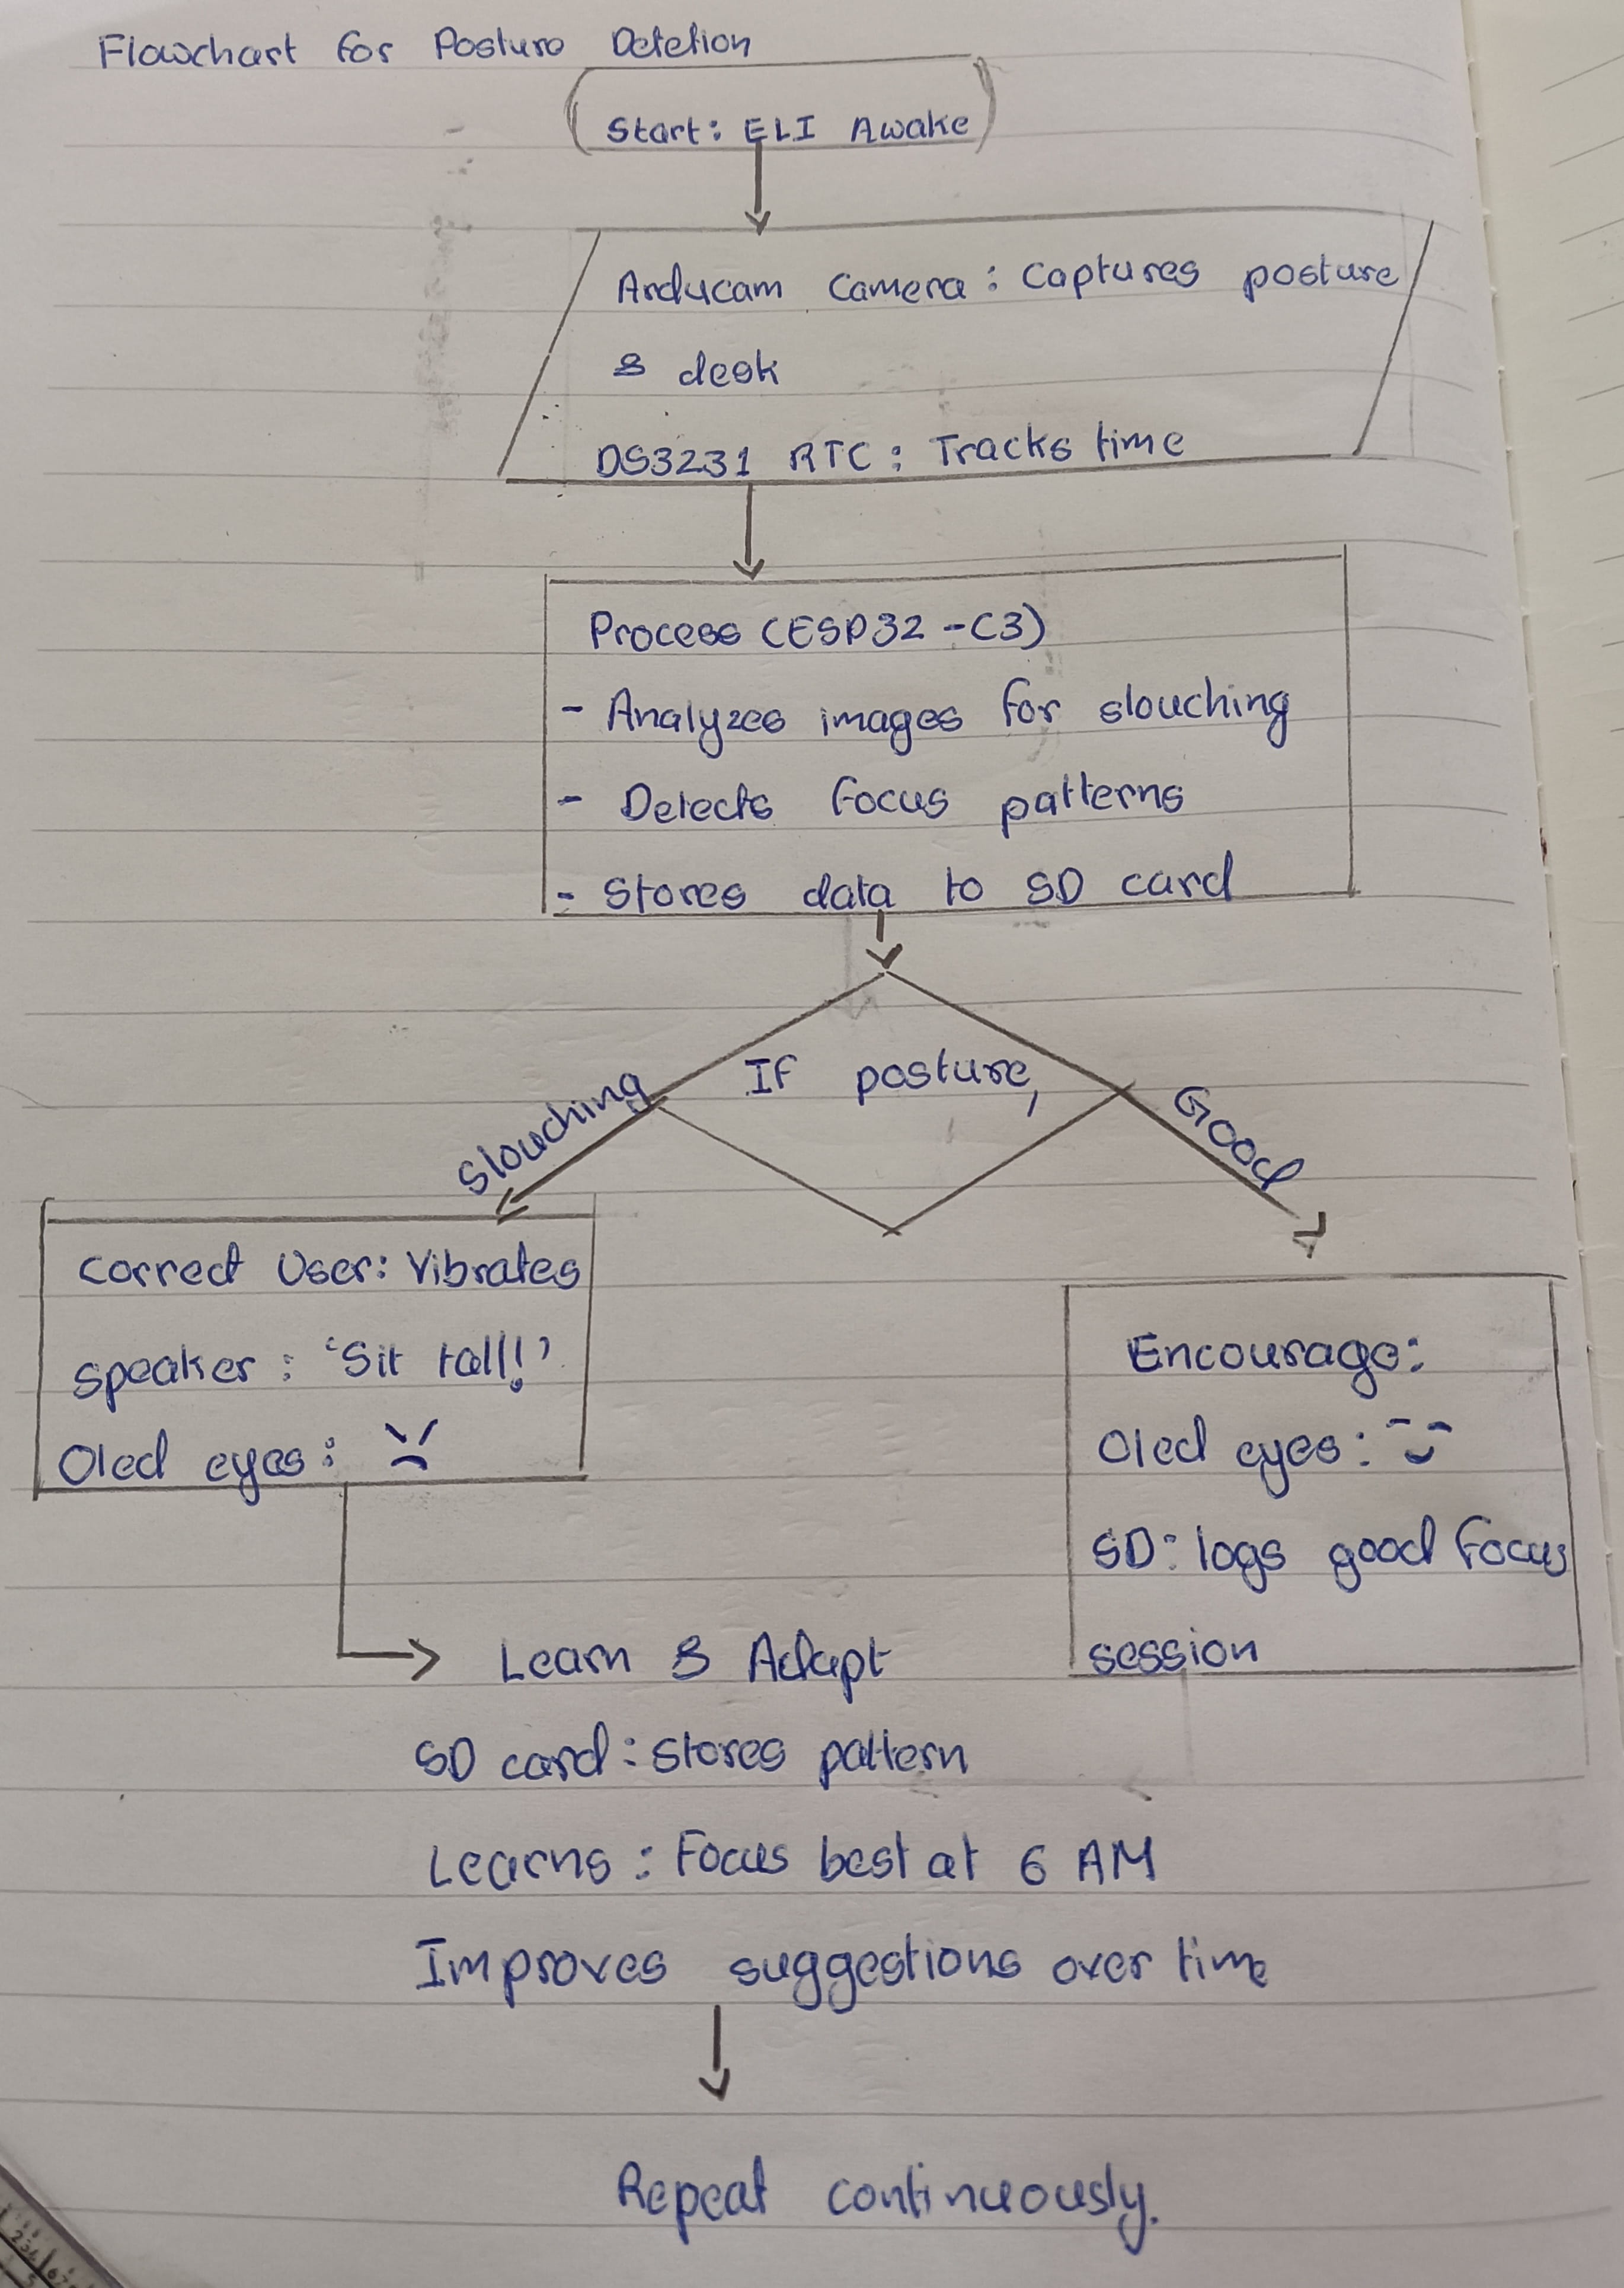 Flowchart for Posture Detetion
Start: ELI Awake
Arducam Camera: Captures posture
& desk
DS3231 RTC: Tracks time
Process (ESP32-C3)
- Analyzes images for slouching
- Detects focus patterns
- Stores data to SD card
If posture,
Slouching
Good
Correct User: Vibrates
Speaker: 'Sit tall!'
Oled eyes:
Encourage:
Oled eyes:
SD: logs good focus
session
Learn & Adapt
SD card: stores pattern
Learns: Focus best at 6 AM
Improves suggestions over time
Repeat continuously.